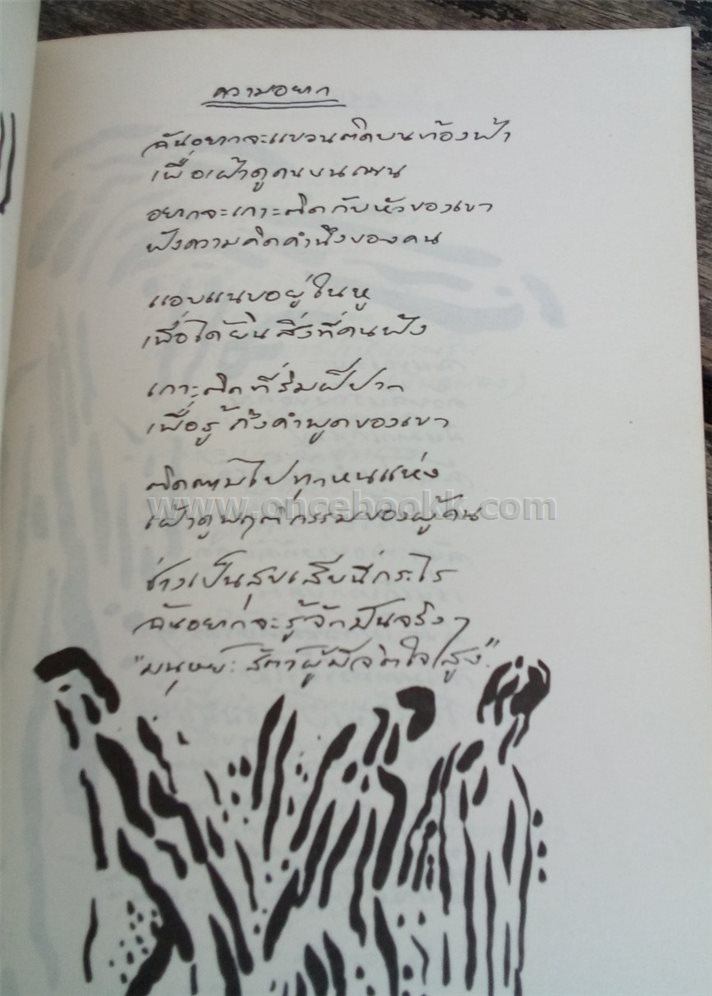 ความอยาก
ฉันอยากจะแขวนติดบนท้องฟ้า
เพื่อเฝ้าดูคนบนถนน
อยากจะเกาะติดกับหัวของเขา
ฟังความคิดคำนึงของคน
แอบแนบอยู่ในหู
เพื่อได้ยินสิ่งที่คนฟัง
เกาะติดที่ริมฝีปาก
เพื่อรู้ถึงคำพูดของเขา
ติดตามไปทุกหนแห่ง
www.oncebookk.com
เฝ้าดูพฤติกรรมของผู้คน
ช่างเป็นสุขเสียนี่กระไร
ฉันอยากจะรู้จักมันจริงๆ
"มนุษย์: สัตว์ผู้มีจิตใจสูง"